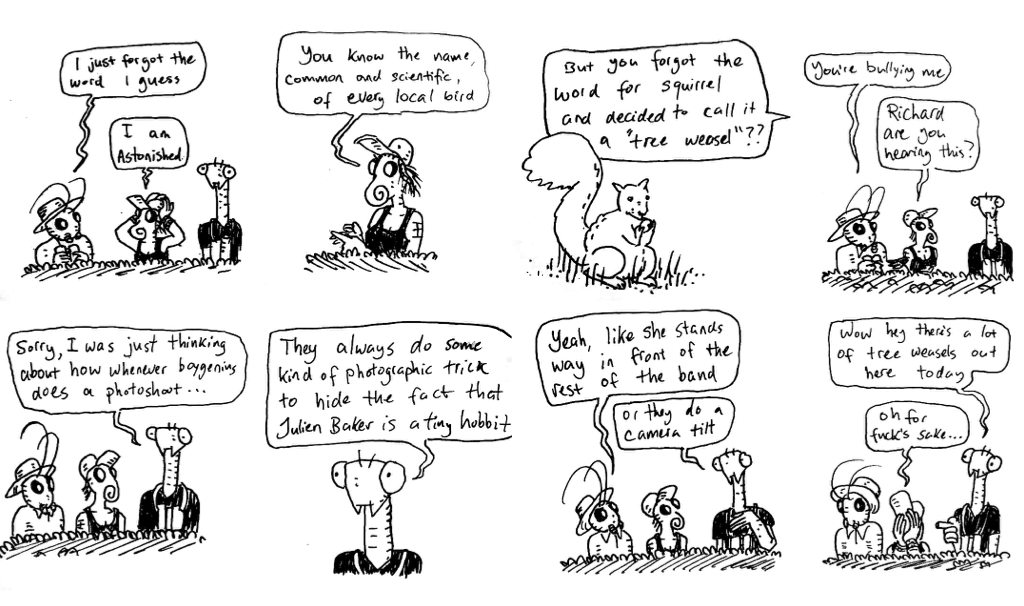 I just forgot the
word I guess
I am
Astonished
You know the name,
common and scientific,
of every local bird
But you forgot the
word for squirrel
and decided to call it
a "tree weasel"??
You're bullying me
Richard
are you
hearing this?
Sorry, I was just thinking
about how whenever boygenius
does a photoshoot...
They always do some
kind of photographic trick
to hide the fact that
Julien Baker is a tiny hobbit
Yeah, like she stands
way in front of the
rest of the band
or they do a
camera tilt
Wow hey there's a lot
of tree weasels out
here today
oh for
fuck's sake...